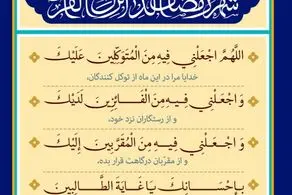 شهر رمضان الذي أنزل فيه القرآن
اللَّهُمَّ اجْعَلْنِي فِيهِ مِنَ الْمُتَوَكِّلِينَ عَلَيْكَ
خدایا مرا در این ماه از توکل کنندگان،
وَ اجْعَلْنِي فِيهِ مِنَ الْفَائِزِينَ لَدَيْكَ
و از رستگاران نزد خود،
وَ اجْعَلْنِي فِيهِ مِنَ الْمُقَرَّبِينَ إِلَيْكَ
و از مقرّبان درگاهت قرار بده،
بِإِحْسَانِكَ يَا غَايَةَ الطَّالِبِينَ